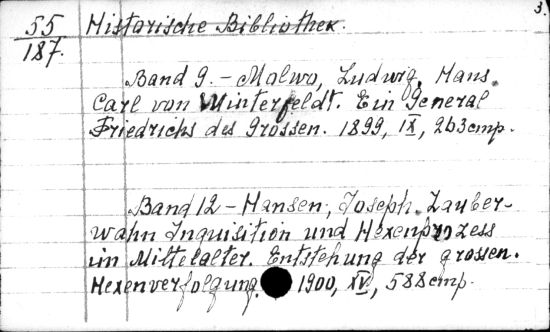 3.
55
187.
Historische Bibliothek.
Band 9. - Malwo, Ludwig. Hans
Carl von Winterfeldt. Ein General
Friedrichs des Grossen. 1899, IX, 263 стр.
Band 12 - Hansen, Joseph. Zauber-
wahn Inquisition und Hexenprozess
im Mittelalter. Entstehung der grossen.
Hexenverfolgung. 1900, XV, 588 стр.